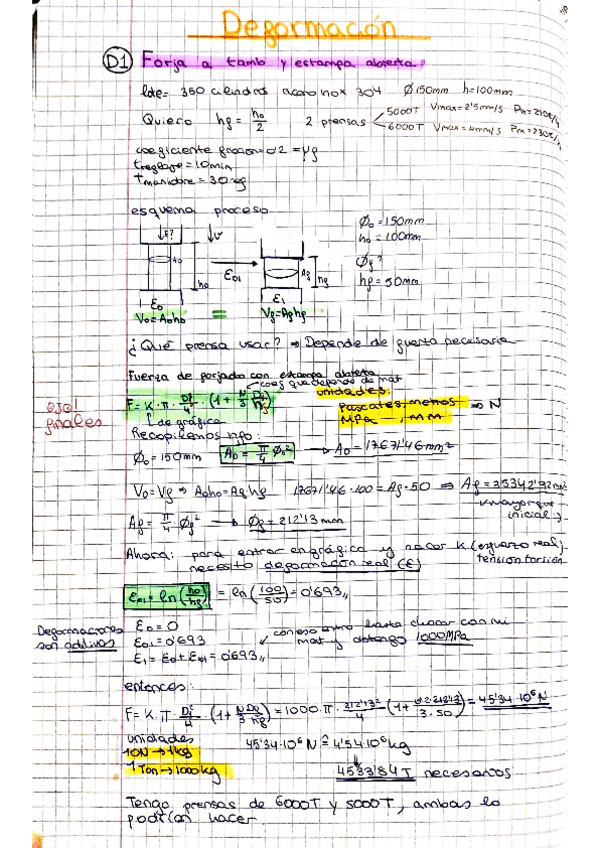 Deformación
D1 Forja a tamb y estampa abierta.
lote = 350 cilindros acero inox 304 Ø150mm h=100mm
Quiero hf = h0/2 2 prensas
5000T Vmax=2'5mm/s
6000T Vmax=4mm/s
coeficiente fricción=0'2 = μf
treglaje=10min
tmaniobra=30sg
esquema proceso
F? ↓v
A0 h0 ε01 Af hf
Ø0=150mm
h0=100mm
Øf?
hf=50mm
ε0 ε1
V0=A0h0 = Vf=Afhf
¿Qué prensa usar? ⇒ Depende de fuerza necesaria
Fuerza de forjado con estampa abierta
coef que depende de mat
F=K·π·Df²/4·(1+μ/3 Df/hf)
unidades:
Pascales, metros ⇒ N
MPa, mm
ojo!
finales
de gráfica
Recopilemos info
Ø0=150mm A0=π/4 Ø0² → A0=17671'46mm²
V0=Vf ⇒ A0h0=Afhf 17671'46·100=Af·50 ⇒ Af=35342'92mm²
mayor que
inicial
Af=π/4 Øf² → Øf=212'13mm
Ahora: para entrar en gráfica y sacar K (esfuerzo real)
tensión torsión
necesito deformación real (ε)
ε01=ln(h0/hf) = ln(100/50)=0'693
Deformaciones
son aditivas
ε0=0
ε01=0'693
ε1=ε0+ε01=0'693
con eso entro hasta chocar con mi
mat y obtengo 1000MPa
entonces:
F=K·π·Df²/4·(1+μ/3 Df/hf)=1000·π·212'13²/4(1+0'2·212'13/3·50)=45'34·10⁶N
unidades
10N→1kg
1Ton→1000kg
45'34·10⁶N ≙ 4'54·10⁶kg
4533'84T necesarios
Tengo prensas de 6000T y 5000T, ambas lo
podrían hacer